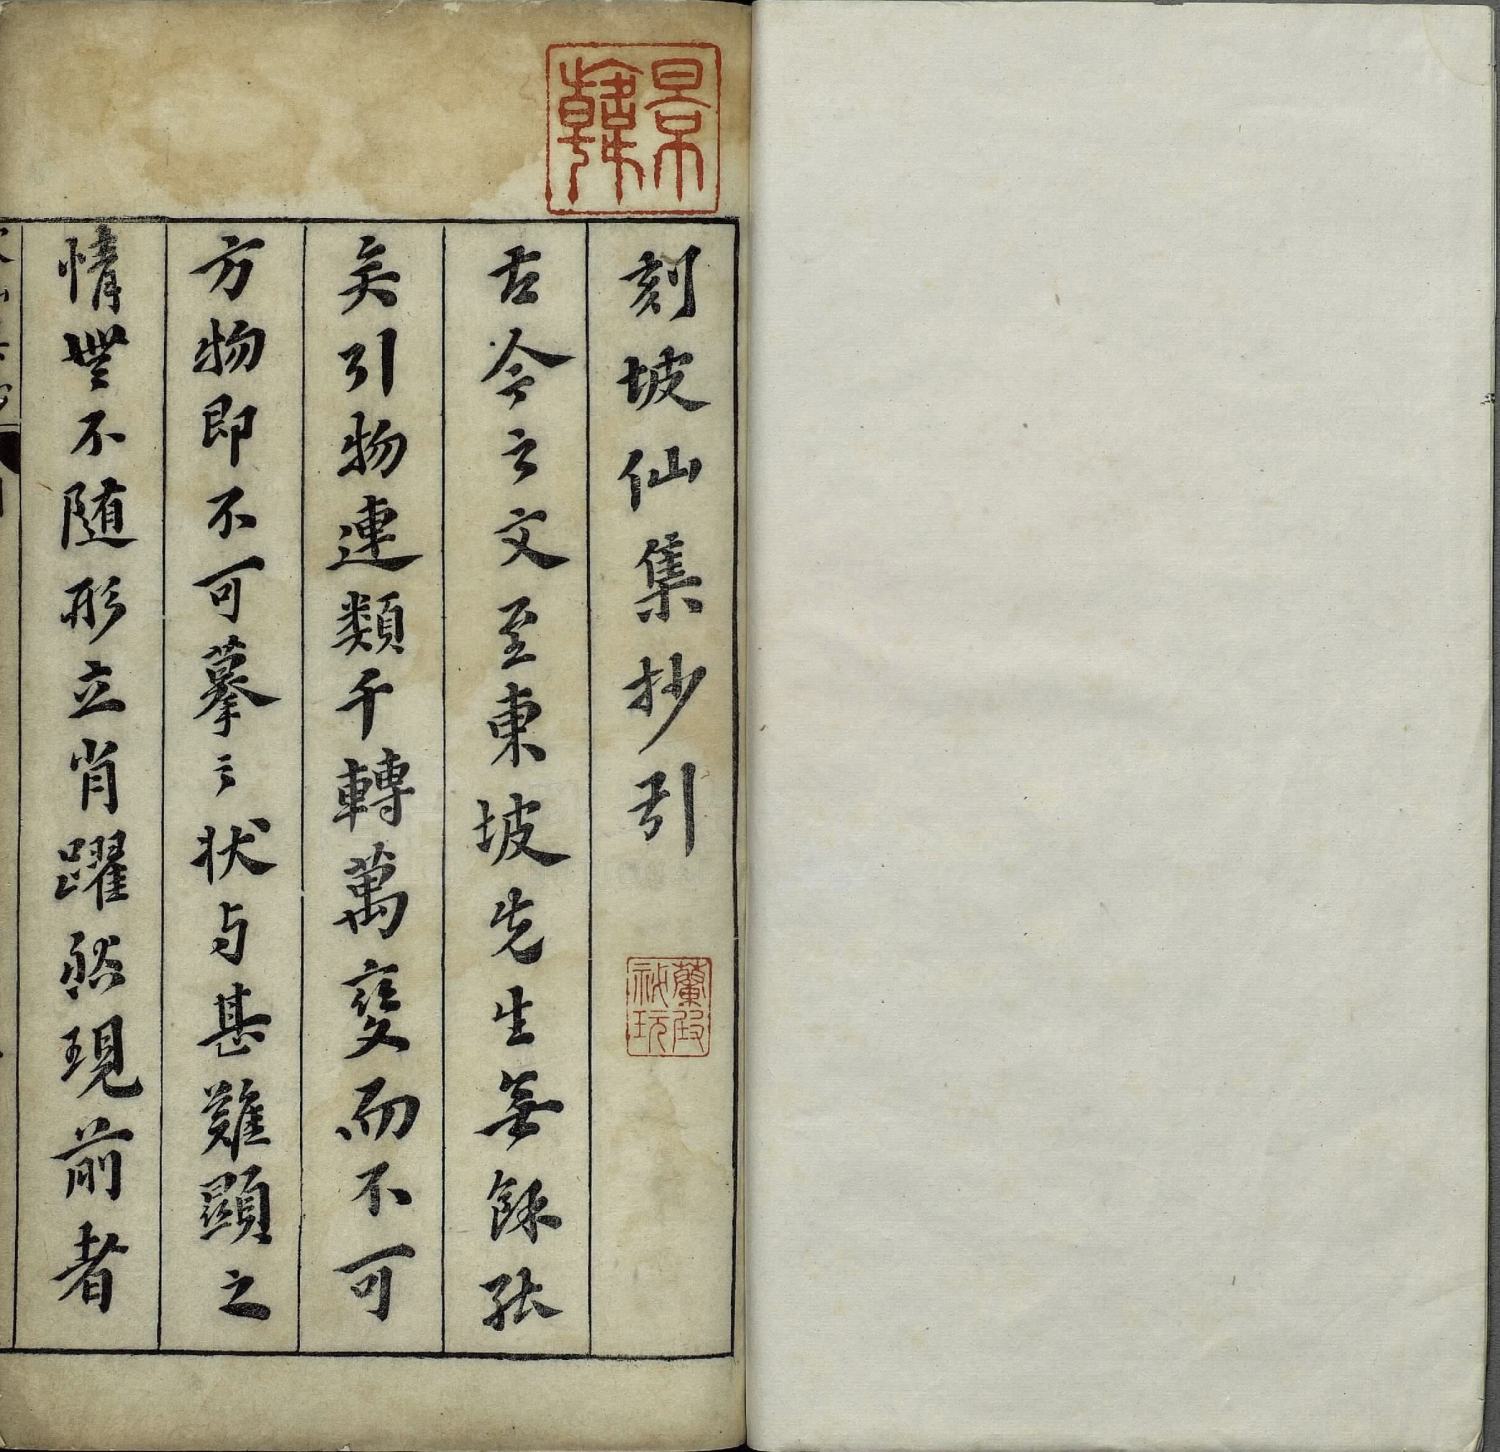 景韓
刻坡仙集抄引
古今之文至東坡先生無餘能
矣引物連類千轉萬變而不可
方物即不可摹之状与甚難顯之
情無不随形立肖躍然現前者
祕玩